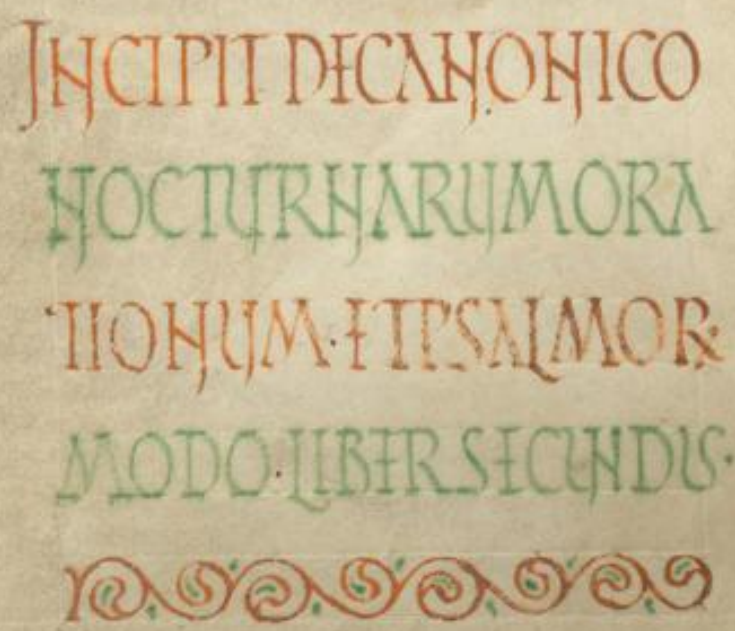 INCIPIT DECANONICO
NOCTURNARUMORA
TIONUM·ETPSALMOR
MODO·LIBERSECUNDUS·